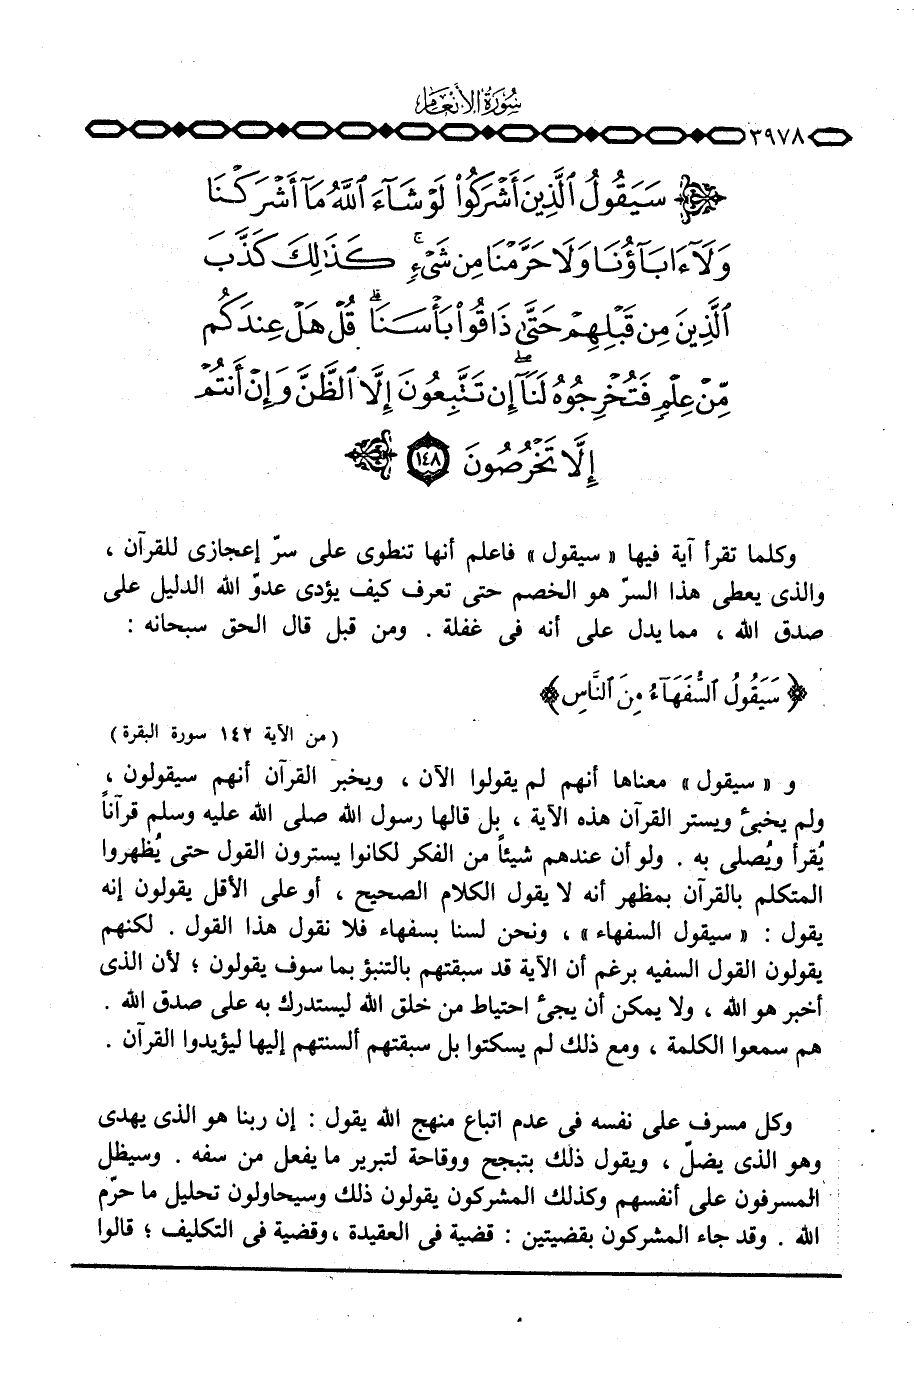 سورة الأنعام
٣٩٧٨
سَيَقُولُ ٱلَّذِينَ أَشْرَكُوا۟ لَوْ شَآءَ ٱللَّهُ مَآ أَشْرَكْنَا
وَلَآ ءَابَآؤُنَا وَلَا حَرَّمْنَا مِن شَىْءٍ ۚ كَذَٰلِكَ كَذَّبَ
ٱلَّذِينَ مِن قَبْلِهِمْ حَتَّىٰ ذَاقُوا۟ بَأْسَنَا ۗ قُلْ هَلْ عِندَكُم
مِّنْ عِلْمٍ فَتُخْرِجُوهُ لَنَآ ۖ إِن تَتَّبِعُونَ إِلَّا ٱلظَّنَّ وَإِنْ أَنتُمْ
إِلَّا تَخْرُصُونَ ١٤٨
وكلما تقرأ آية فيها « سيقول » فاعلم أنها تنطوى على سرّ إعجازى للقرآن ،
والذى يعطى هذا السرّ هو الخصم حتى تعرف كيف يؤدى عدوّ الله الدليل على
صدق الله ، مما يدل على أنه فى غفلة . ومن قبل قال الحق سبحانه :
﴿ سَيَقُولُ ٱلسُّفَهَآءُ مِنَ ٱلنَّاسِ ﴾
( من الآية ١٤٢ سورة البقرة )
و « سيقول » معناها أنهم لم يقولوا الآن ، ويخبر القرآن أنهم سيقولون ،
ولم يخبئ ويستر القرآن هذه الآية ، بل قالها رسول الله صلى الله عليه وسلم قرآناً
يُقرأ ويُصلى به . ولو أن عندهم شيئاً من الفكر لكانوا يسترون القول حتى يُظهروا
المتكلم بالقرآن بمظهر أنه لا يقول الكلام الصحيح ، أو على الأقل يقولون إنه
يقول : « سيقول السفهاء » ، ونحن لسنا بسفهاء فلا نقول هذا القول . لكنهم
يقولون القول السفيه برغم أن الآية قد سبقتهم بالتنبؤ بما سوف يقولون ؛ لأن الذى
أخبر هو الله ، ولا يمكن أن يجئ احتياط من خلق الله ليستدرك به على صدق الله .
هم سمعوا الكلمة ، ومع ذلك لم يسكتوا بل سبقتهم ألسنتهم إليها ليؤيدوا القرآن .
وكل مسرف على نفسه فى عدم اتباع منهج الله يقول : إن ربنا هو الذى يهدى
وهو الذى يضلّ ، ويقول ذلك بتبجح ووقاحة لتبرير ما يفعل من سفه . وسيظل
المسرفون على أنفسهم وكذلك المشركون يقولون ذلك وسيحاولون تحليل ما حرّم
الله . وقد جاء المشركون بقضيتين : قضية فى العقيدة ، وقضية فى التكليف ؛ قالوا